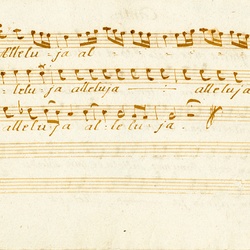 Allelu - ja al
- lelu - ja alleluja - alleluja
alleluja al - lelu - ja.